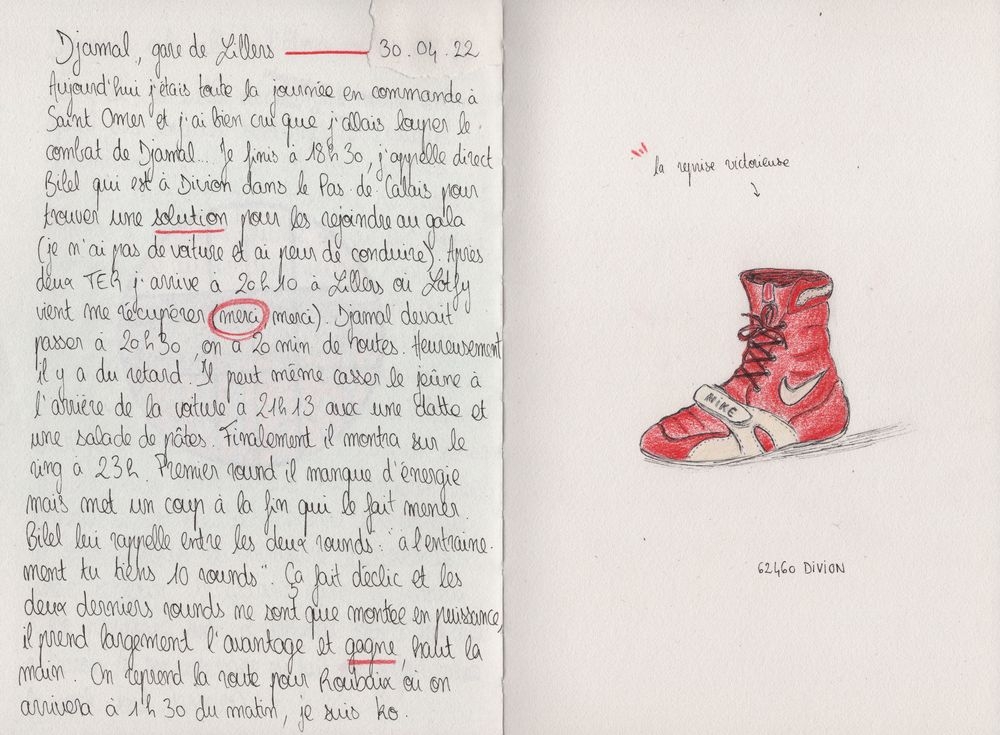 Djamal, gare de Lillers — 30.04.22
Aujourd'hui j'étais toute la journée en commande à
Saint Omer et j'ai bien cru que j'allais louper le
combat de Djamal... Je finis à 18h30, j'appelle direct
Bilel qui est à Divion dans le Pas de Calais pour
trouver une solution pour les rejoindre au gala
(je n'ai pas de voiture et ai peur de conduire). Après
deux TER j'arrive à 20h10 à Lillers où Lotfy
vient me récupérer (merci merci). Djamal devait
passer à 20h30, on a 20 min de routes. Heureusement
il y a du retard. Il peut même casser le jeûne à
l'arrière de la voiture à 21h13 avec une datte et
une salade de pâtes. Finalement il montra sur le
ring à 23h. Premier round il manque d'énergie
mais met un coup à la fin qui le fait mener.
Bilel lui rappelle entre les deux rounds: "à l'entraine-
ment tu tiens 10 rounds". Ça fait déclic et les
deux derniers rounds ne sont que montée en puissance,
il prend largement l'avantage et gagne, haut la
main. On reprend la route pour Roubaix où on
arrivera à 1h30 du matin, je suis ko.
la reprise victorieuse
NIKE
62460 DIVION